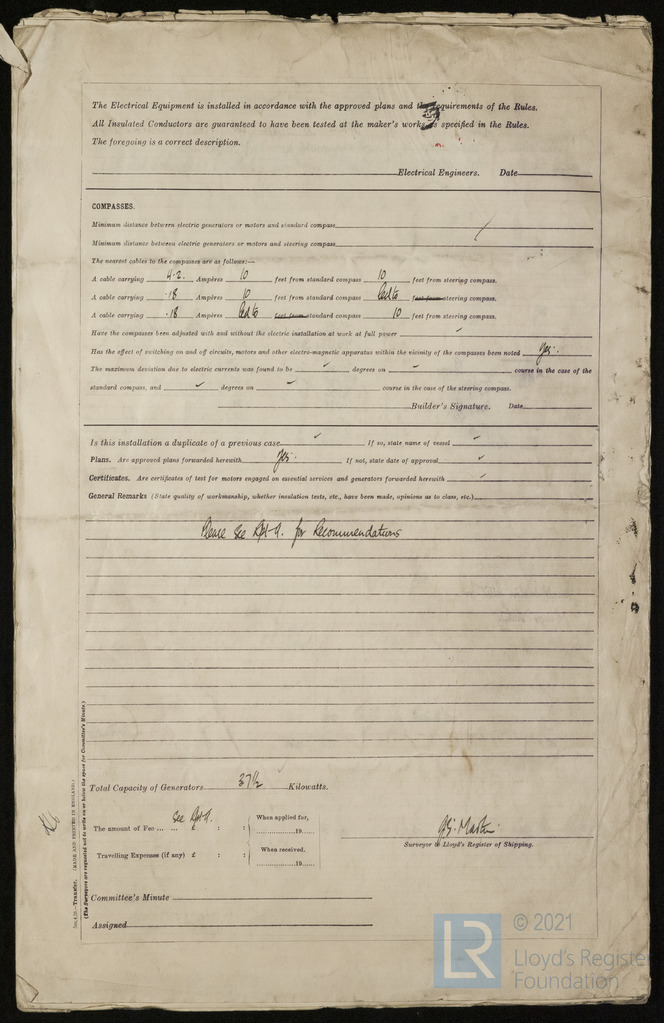 The Electrical Equipment is installed in accordance with the approved plans and the requirements of the Rules.
All Insulated Conductors are guaranteed to have been tested at the maker's works as specified in the Rules.
The foregoing is a correct description.
Electrical Engineers. Date
COMPASSES.
Minimum distance between electric generators or motors and standard compass
Minimum distance between electric generators or motors and steering compass
The nearest cables to the compasses are as follows:—
A cable carrying 4.2. Ampères 10 feet from standard compass 10 feet from steering compass.
A cable carrying .18 Ampères 10 feet from standard compass led to feet from steering compass.
A cable carrying .18 Ampères led to feet from standard compass 10 feet from steering compass.
Have the compasses been adjusted with and without the electric installation at work at full power ✓
Has the effect of switching on and off circuits, motors and other electro-magnetic apparatus within the vicinity of the compasses been noted Yes.
The maximum deviation due to electric currents was found to be ✓ degrees on ✓ course in the case of the
standard compass, and ✓ degrees on ✓ course in the case of the steering compass.
Builder's Signature. Date
Is this installation a duplicate of a previous case ✓ If so, state name of vessel ✓
Plans. Are approved plans forwarded herewith Yes. If not, state date of approval ✓
Certificates. Are certificates of test for motors engaged on essential services and generators forwarded herewith ✓
General Remarks (State quality of workmanship, whether insulation tests, etc., have been made, opinions as to class, etc.)
Please see Rpt. 4. for Recommendations
Total Capacity of Generators 37½ Kilowatts.
See Rpt. 4.
The amount of Fee ... ... £ : :
When applied for,
19
Travelling Expenses (if any) £ : :
When received,
19
Surveyor to Lloyd's Register of Shipping.
Committee's Minute
Assigned
Transfer. (MADE AND PRINTED IN ENGLAND.)
(The Surveyors are requested not to write on or below the space for Committee's Minute.)
LR
© 2021
Lloyd's Register
Foundation